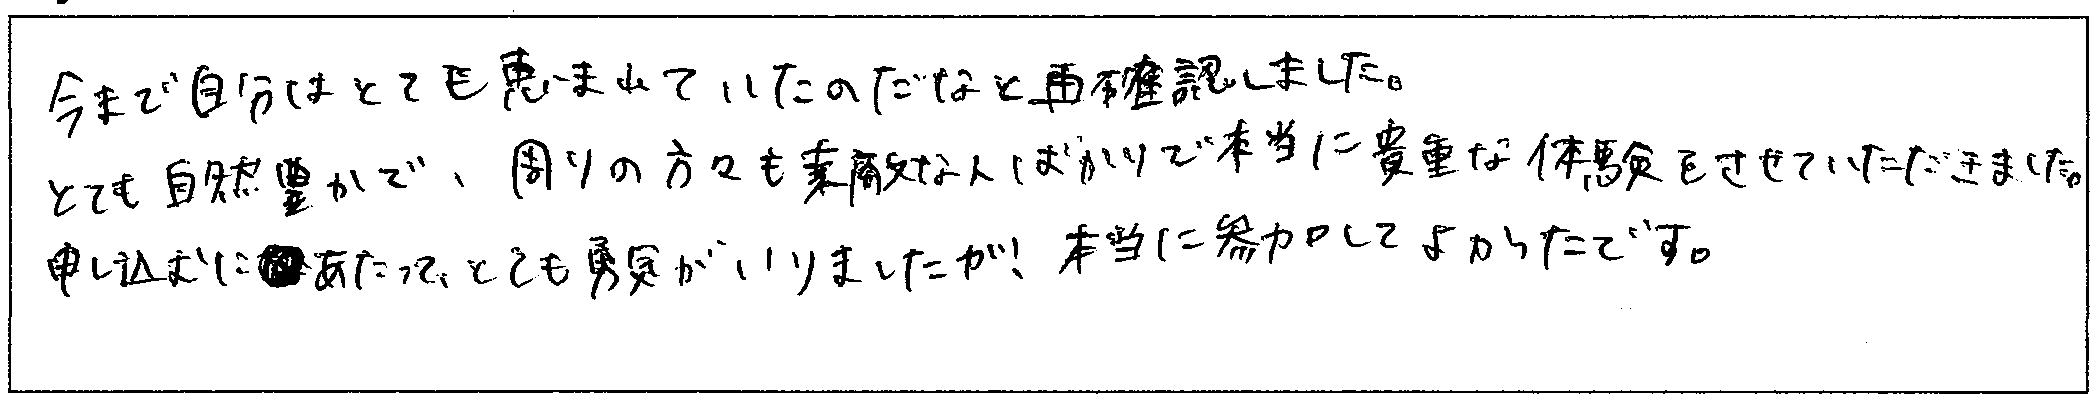 今まで自分はとても恵まれていたのだなと再確認しました。
とても自然豊かで、周りの方々も素敵な人ばかりで本当に貴重な体験をさせていただきました。
申し込むにあたって、とても勇気がいりましたが、本当に参加してよかったです。